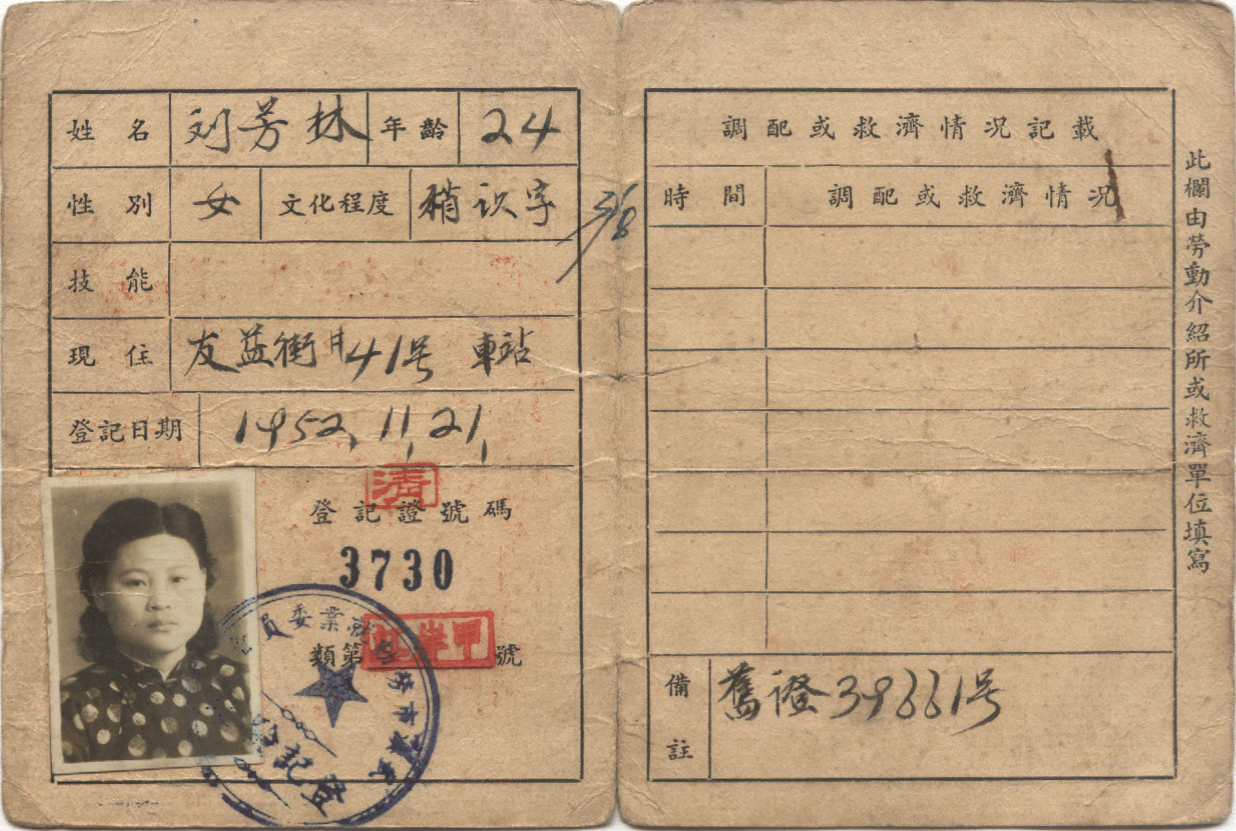 姓名 刘芳林 年齡 24
性別 女 文化程度 稍识字
技能
現住 友益街 41号 車站
登記日期 1952.11.21.
清
登記證號碼
3730
類第 號
就業委員
登記
調配或救濟情况記載
時間 調配或救濟情况
備註 舊證39661号
此欄由勞動介紹所或救濟單位填寫